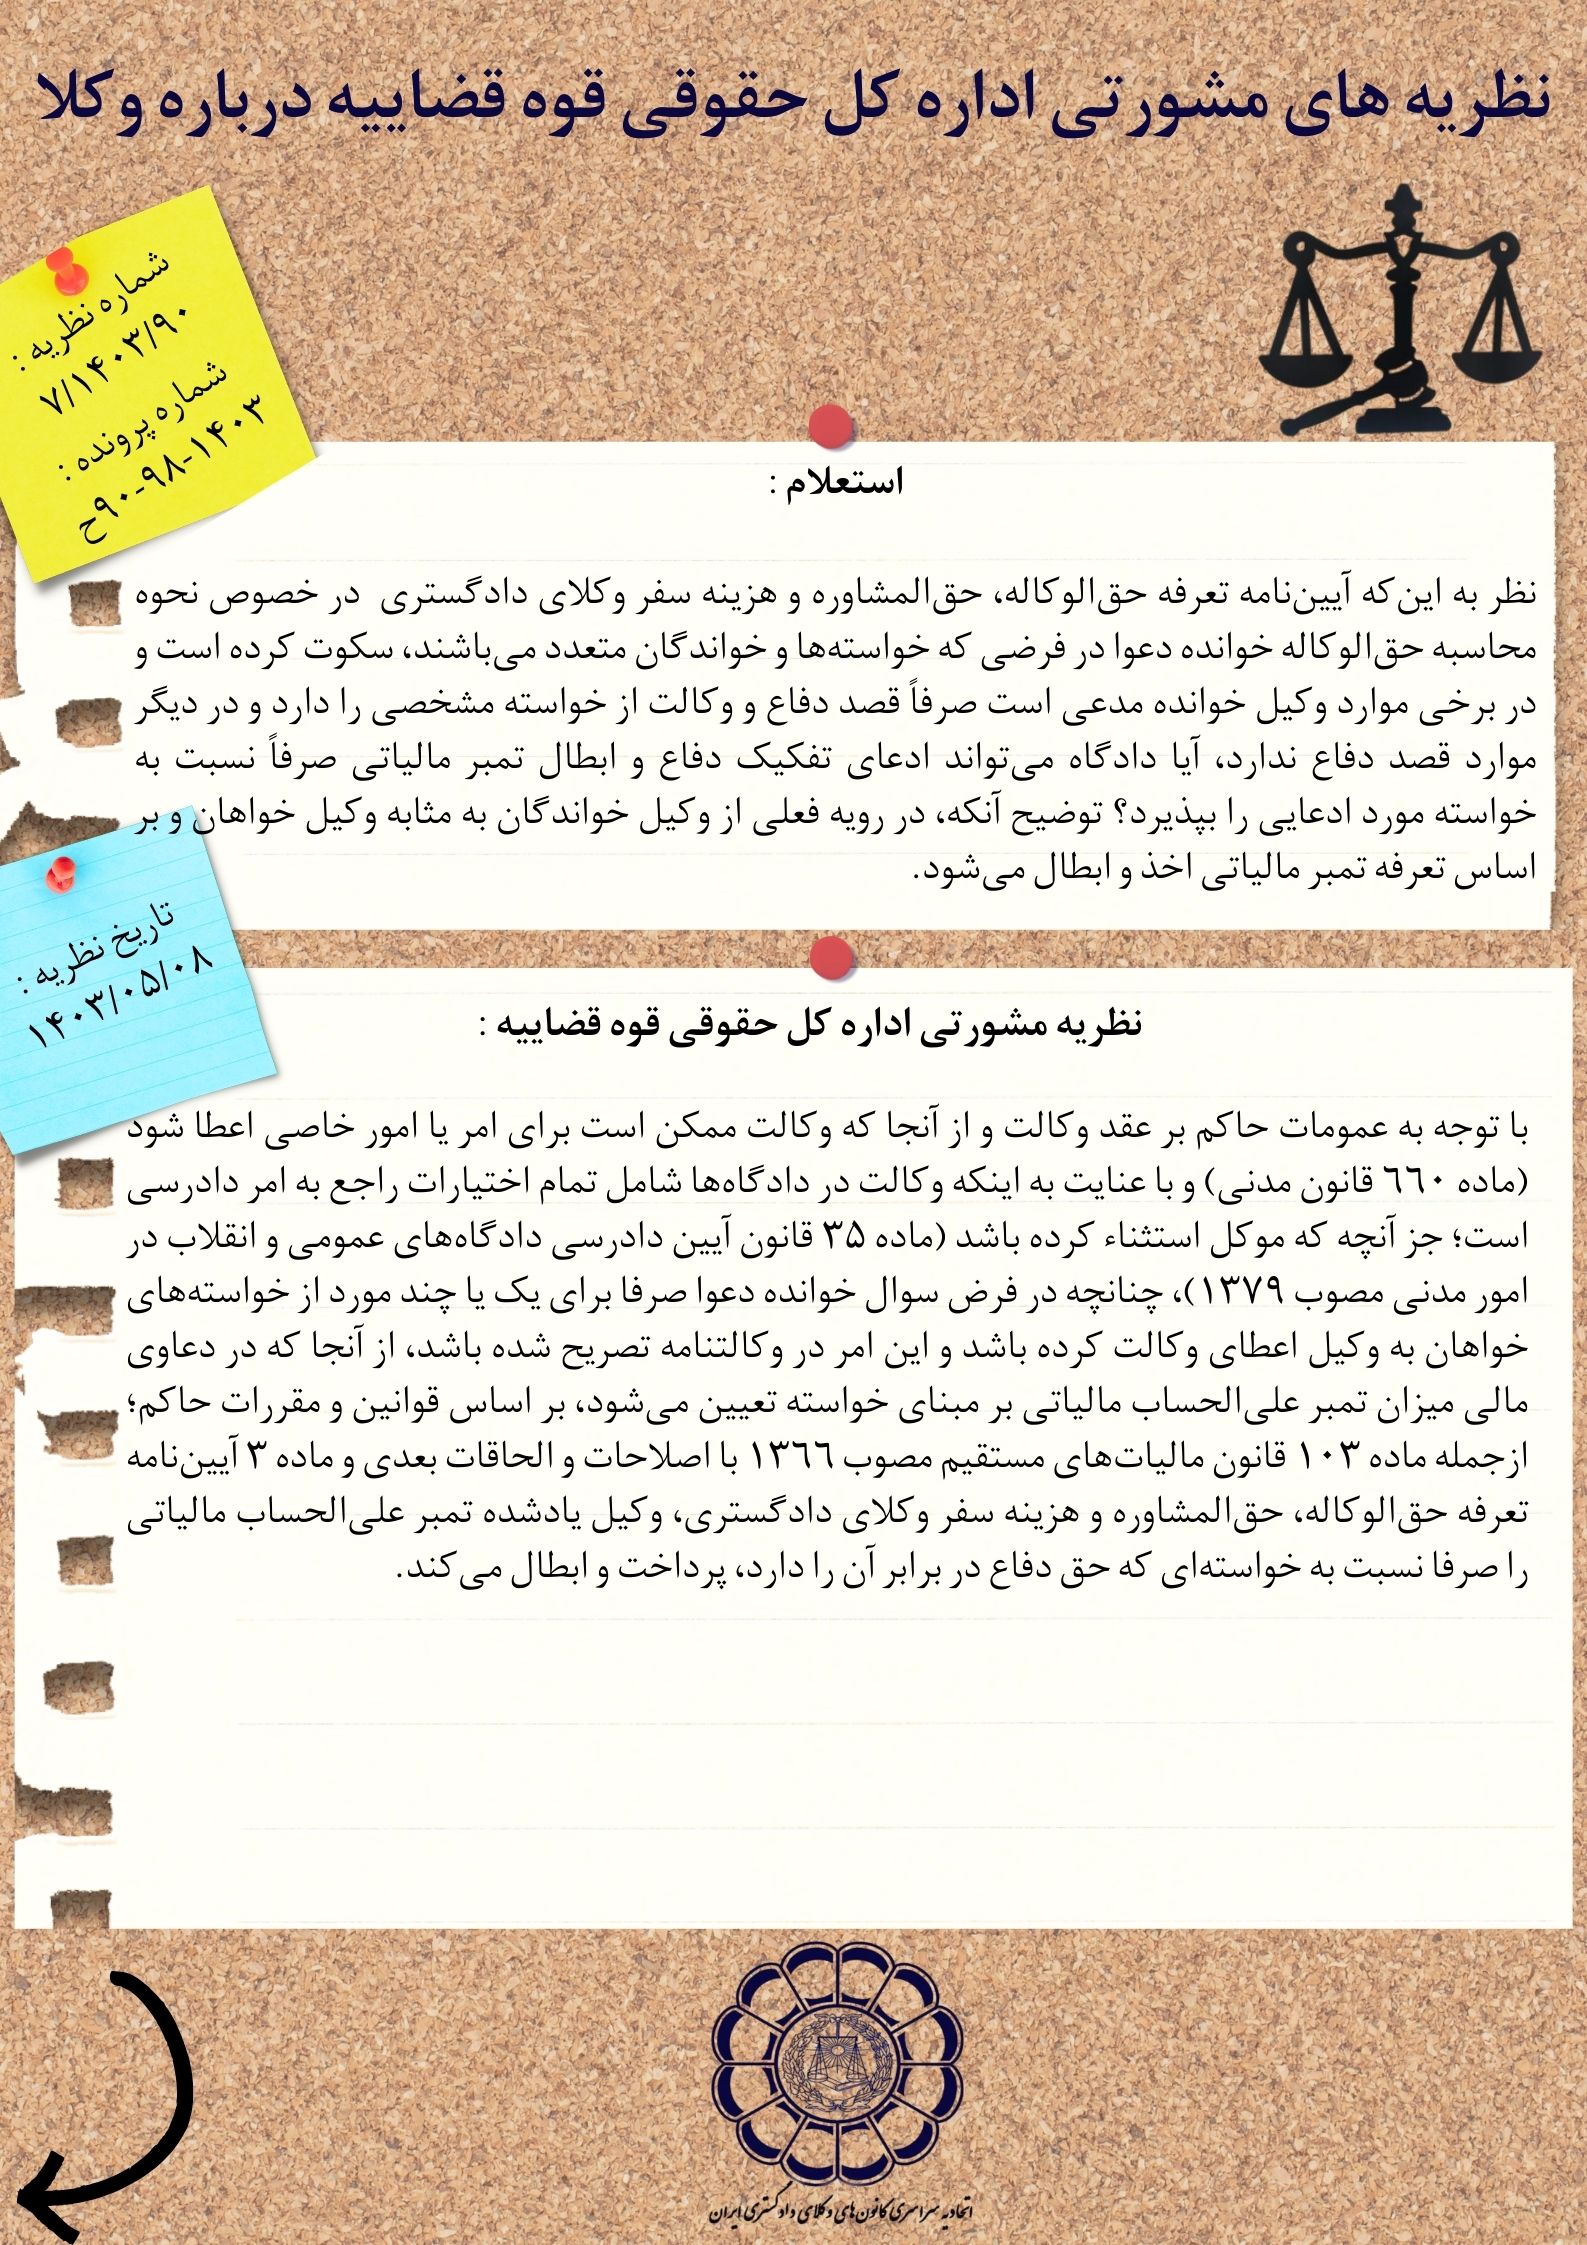 نظریه های مشورتی اداره کل حقوقی قوه قضاییه درباره وکلا
شماره نظریه :
۷/۱۴۰۳/۹۰
شماره پرونده :
۱۴۰۳-۹۸-۹۰ح
استعلام :
نظر به این‌که آیین‌نامه تعرفه حق‌الوکاله، حق‌المشاوره و هزینه سفر وکلای دادگستری در خصوص نحوه
محاسبه حق‌الوکاله خوانده دعوا در فرضی که خواسته‌ها و خواندگان متعدد می‌باشند، سکوت کرده است و
در برخی موارد وکیل خوانده مدعی است صرفاً قصد دفاع و وکالت از خواسته مشخصی را دارد و در دیگر
موارد قصد دفاع ندارد، آیا دادگاه می‌تواند ادعای تفکیک دفاع و ابطال تمبر مالیاتی صرفاً نسبت به
خواسته مورد ادعایی را بپذیرد؟ توضیح آنکه، در رویه فعلی از وکیل خواندگان به مثابه وکیل خواهان و بر
اساس تعرفه تمبر مالیاتی اخذ و ابطال می‌شود.
تاریخ نظریه :
۱۴۰۳/۰۵/۰۸
نظریه مشورتی اداره کل حقوقی قوه قضاییه :
با توجه به عمومات حاکم بر عقد وکالت و از آنجا که وکالت ممکن است برای امر یا امور خاصی اعطا شود
(ماده ٦٦٠ قانون مدنی) و با عنایت به اینکه وکالت در دادگاه‌ها شامل تمام اختیارات راجع به امر دادرسی
است؛ جز آنچه که موکل استثناء کرده باشد (ماده ۳۵ قانون آیین دادرسی دادگاه‌های عمومی و انقلاب در
امور مدنی مصوب ۱۳۷۹)، چنانچه در فرض سوال خوانده دعوا صرفا برای یک یا چند مورد از خواسته‌های
خواهان به وکیل اعطای وکالت کرده باشد و این امر در وکالتنامه تصریح شده باشد، از آنجا که در دعاوی
مالی میزان تمبر علی‌الحساب مالیاتی بر مبنای خواسته تعیین می‌شود، بر اساس قوانین و مقررات حاکم؛
ازجمله ماده ۱۰۳ قانون مالیات‌های مستقیم مصوب ١٣٦٦ با اصلاحات و الحاقات بعدی و ماده ۳ آیین‌نامه
تعرفه حق‌الوکاله، حق‌المشاوره و هزینه سفر وکلای دادگستری، وکیل یادشده تمبر علی‌الحساب مالیاتی
را صرفا نسبت به خواسته‌ای که حق دفاع در برابر آن را دارد، پرداخت و ابطال می‌کند.
اتحادیه سراسری کانون‌های وکلای دادگستری ایران